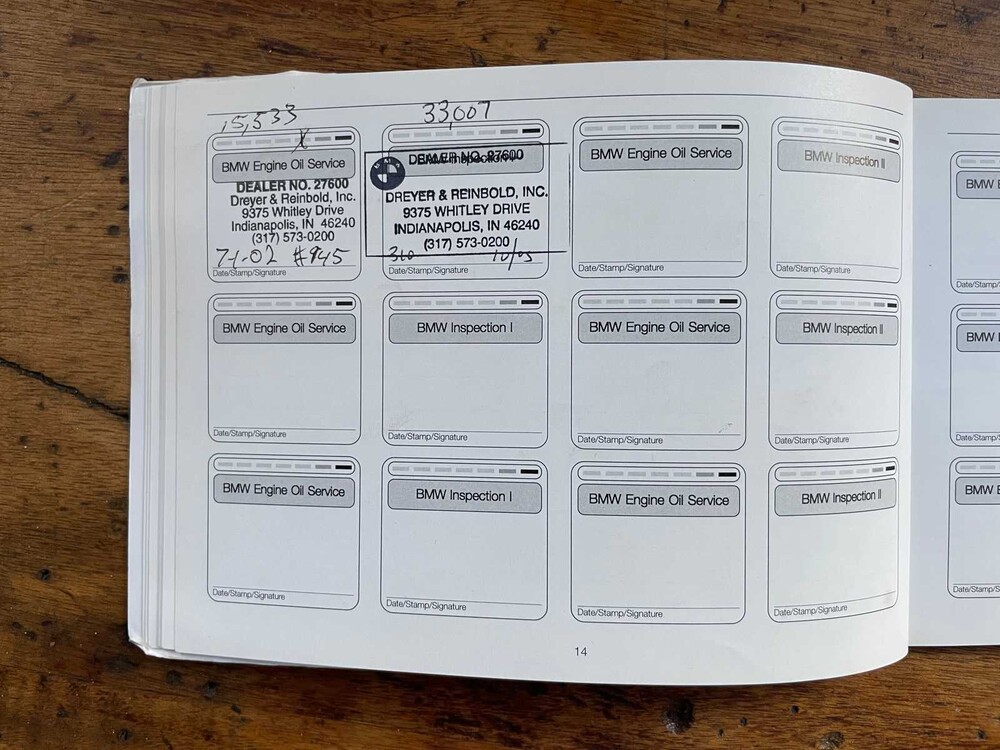 15,533
33,007
BMW Engine Oil Service
DEALER NO. 27600
Dreyer & Reinbold, Inc.
9375 Whitley Drive
Indianapolis, IN 46240
(317) 573-0200
7-1-02 #945
Date/Stamp/Signature
BMW Inspection I
DEALER NO. 27600
DREYER & REINBOLD, INC.
9375 WHITLEY DRIVE
INDIANAPOLIS, IN 46240
(317) 573-0200
10/03
Date/Stamp/Signature
BMW Engine Oil Service
Date/Stamp/Signature
BMW Inspection II
Date/Stamp/Signature
BMW Engine Oil Service
Date/Stamp/Signature
BMW Inspection I
Date/Stamp/Signature
BMW Engine Oil Service
Date/Stamp/Signature
BMW Inspection II
Date/Stamp/Signature
BMW Engine Oil Service
Date/Stamp/Signature
BMW Inspection I
Date/Stamp/Signature
BMW Engine Oil Service
Date/Stamp/Signature
BMW Inspection II
Date/Stamp/Signature
14
BMW
Date/Stamp/S
BMW
Date/Stamp/S
BMW
Date/Stamp/S